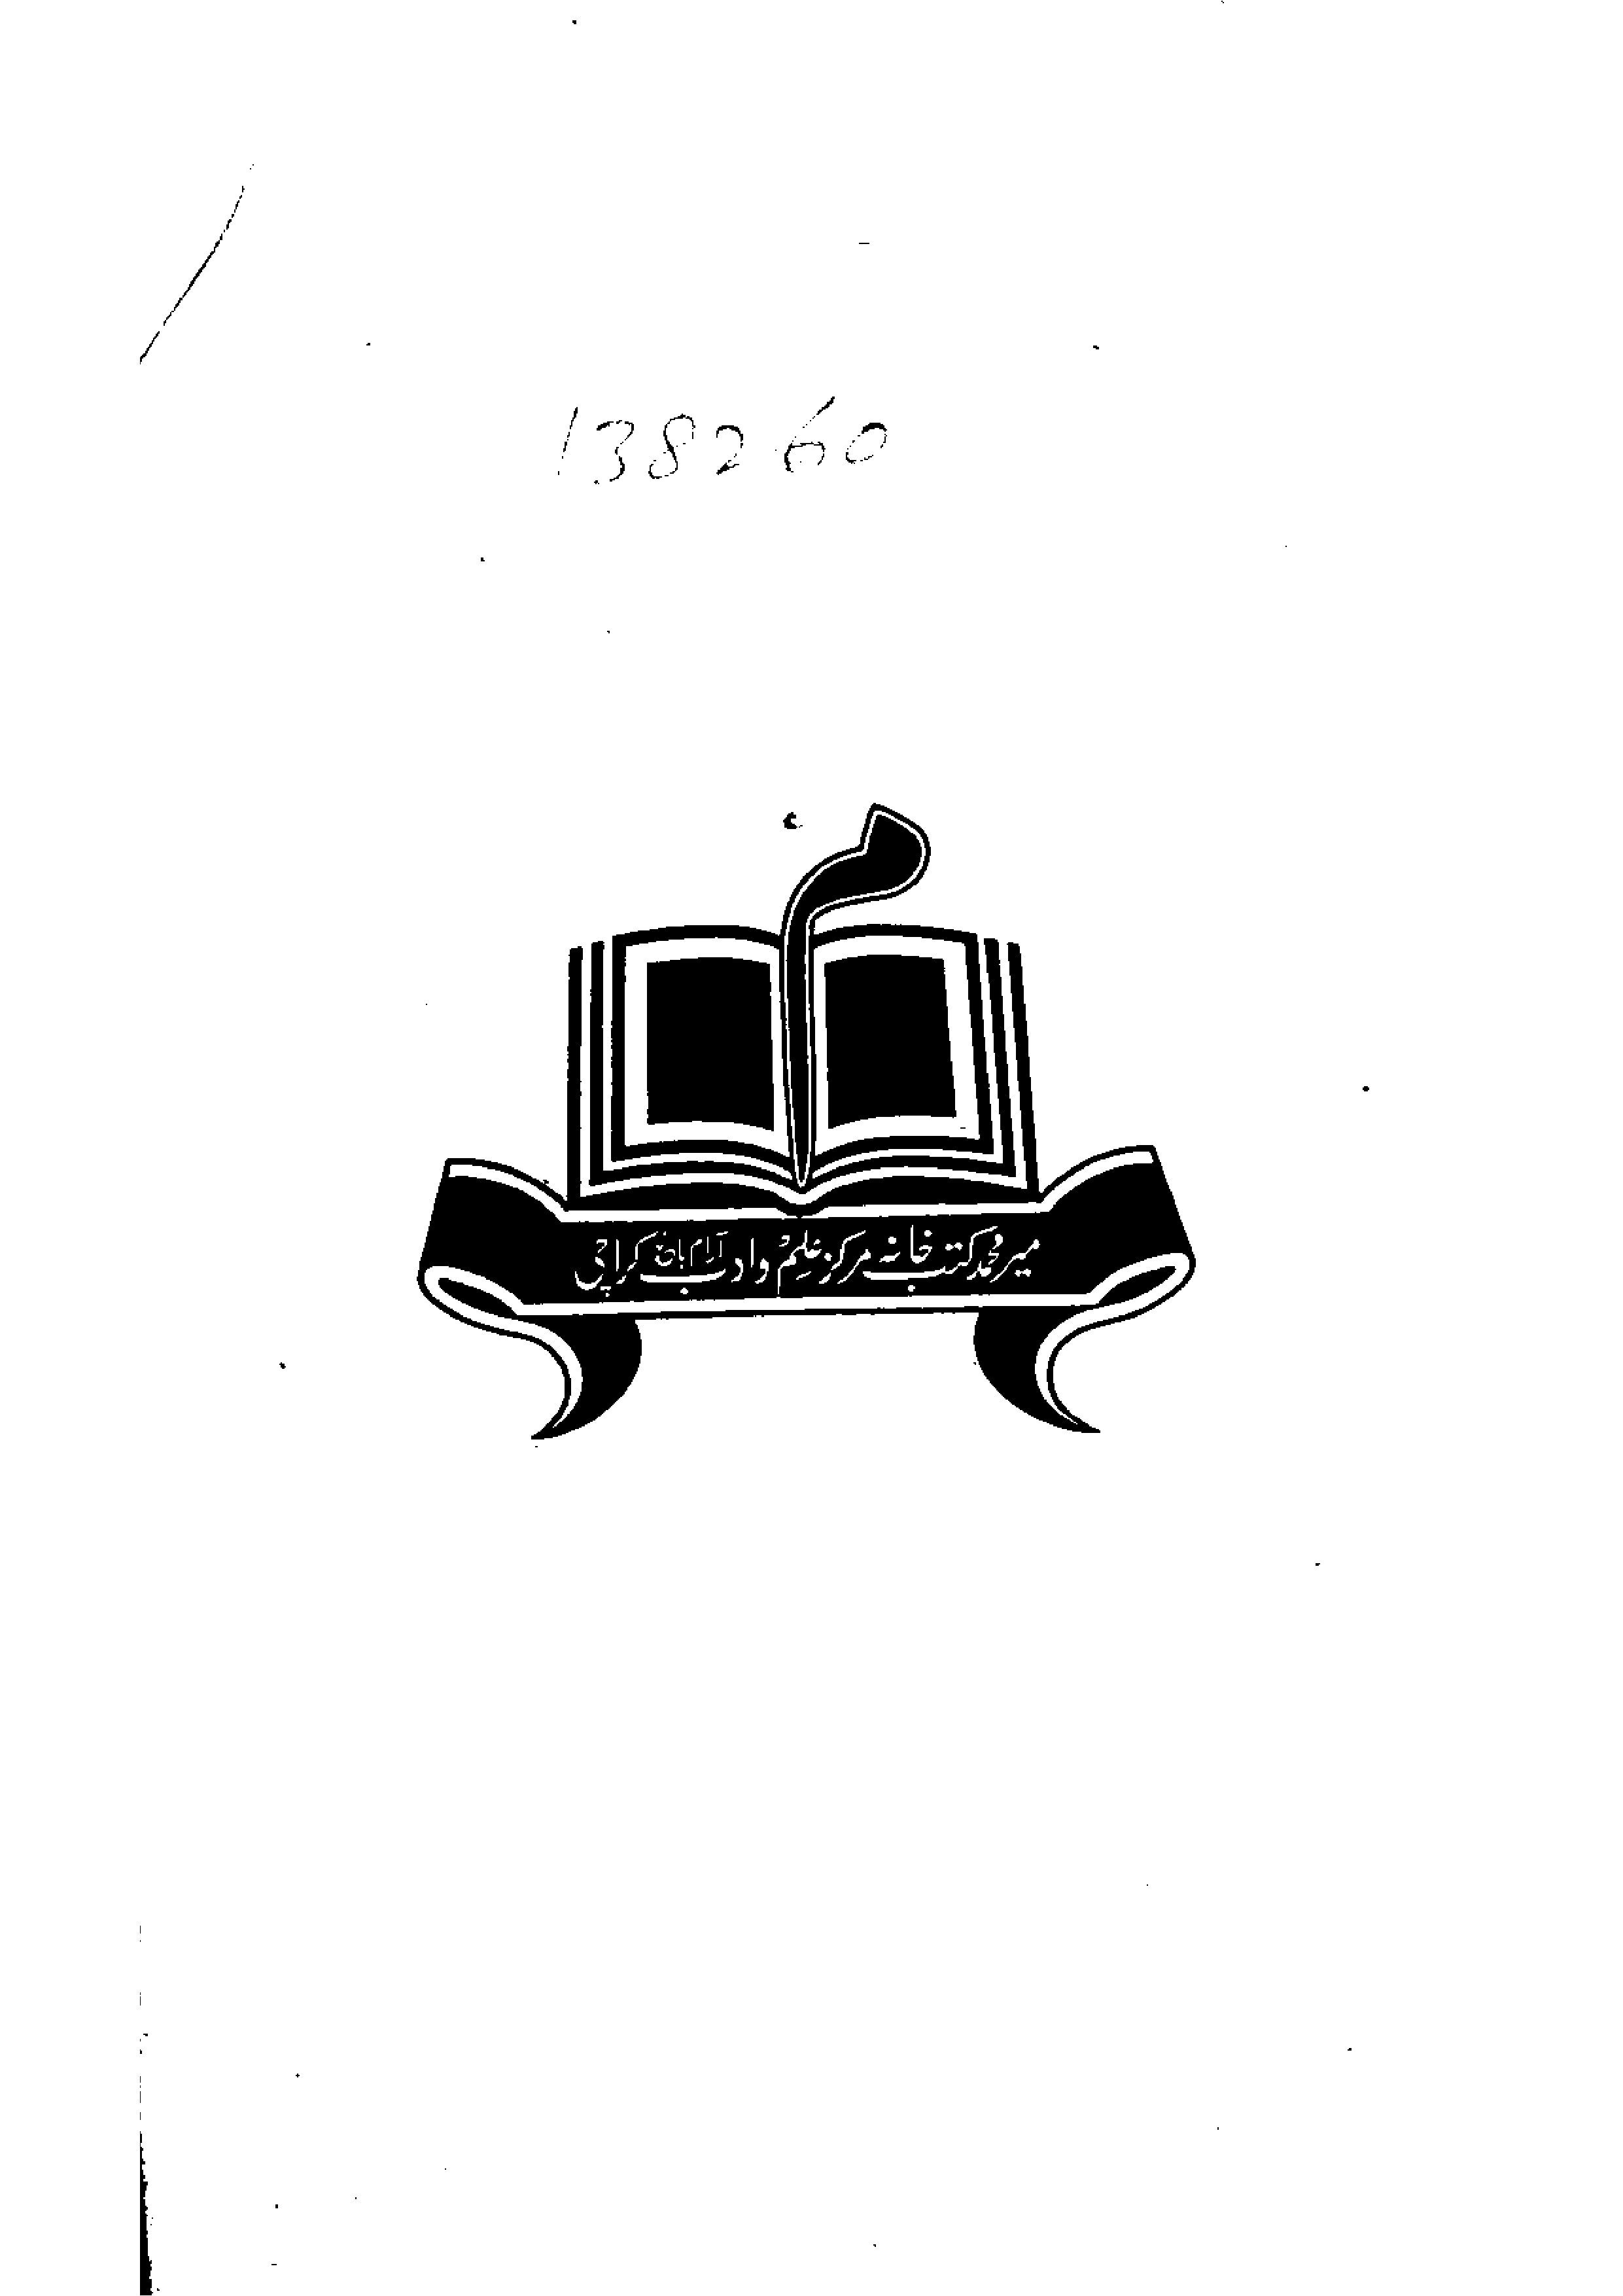 138260
میر محمد کتب خانہ مرکز علم و ادب آرام باغ کراچی